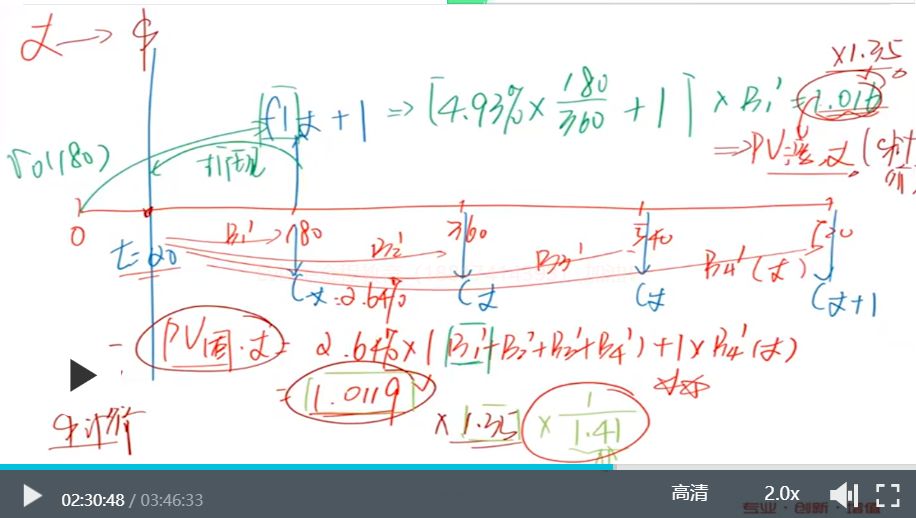 £ → $
×1.35
[f1]£ + 1 ⇒ [4.93% × 180/360 + 1] × B1' = 1.016
r0(180)
折现
⇒ PV浮.£
0
B1' 180
B2' 360
B3' 540
B4'(£)
t=20
C£=2.64%
C£
C£
C£+1
PV固.£ = 2.64% × (B1'+B2'+B3'+B4') + 1×B4'(£)
= 1.0119
× 1.35 × 1/1.41
$计价
02:30:48 / 03:46:33
高清
2.0x
专业·创新·增值